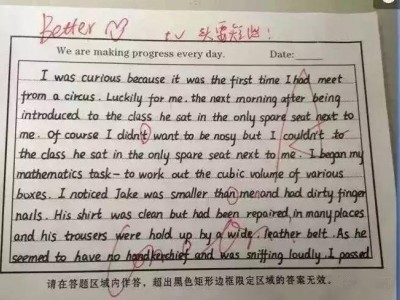 Better
We are making progress every day. Date:
I was curious because it was the first time I had meet
from a circus. Luckily for me. the next morning after being
introduced to the class he sat in the only spare seat next to
me. Of course I didn't want to be nosy but I couldn't to
the class he sat in the only spare seat next to me. I began my
mathematics task- to work out the cubic volume of various
boxes. I noticed Jake was smaller than me and had dirty finger
nails. His shirt was clean but had been repaired, in many places
and his trousers were hold up by a wide, leather belt. As he
seemed to have no handkerchief and was sniffing loudly. I passed
请在答题区域内作答，超出黑色矩形边框限定区域的答案无效。